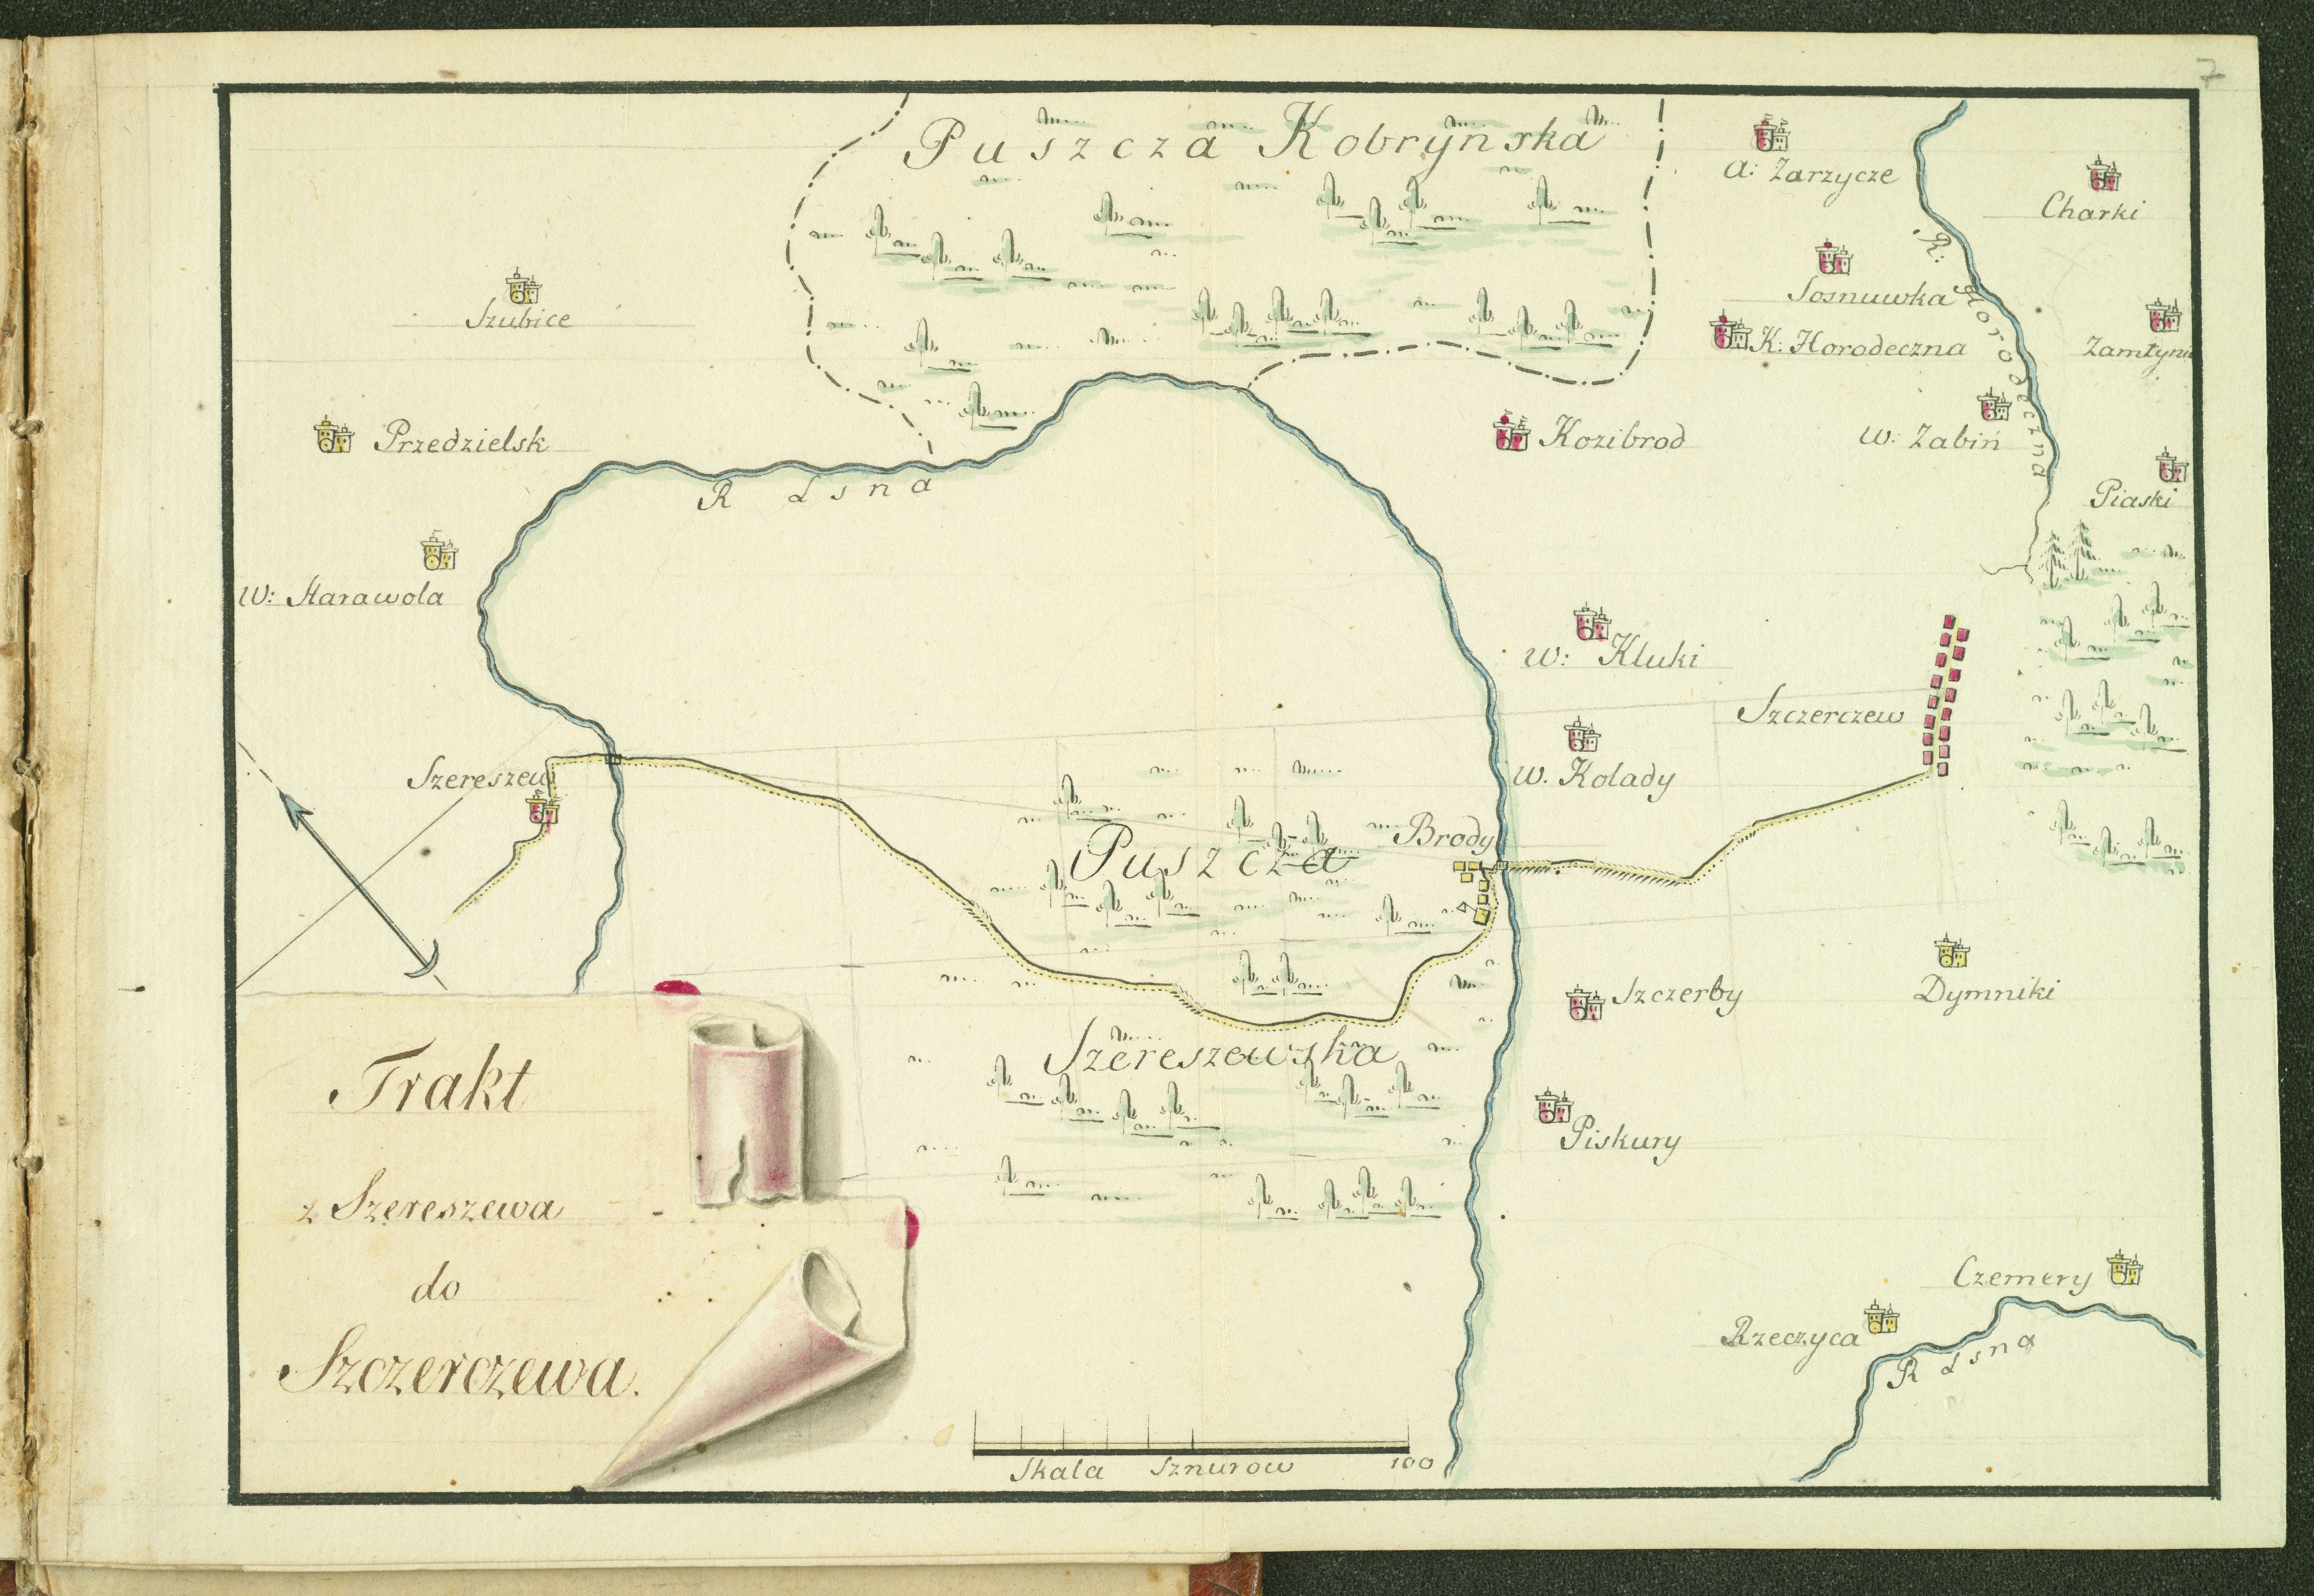 7
Puszcza Kobrynska
a: Zarzycze
Charki
R: Horodeczna
Szubice
Sosnuwka
K: Horodeczna
Przedzielsk
Kozibrod
W: Zabiń
Piaski
R Lsna
W: Harawola
W: Kluki
Szczerczew
Szereszew
W. Kolady
Brody
Puszcza
Szereszewska
Szczerby
Dymniki
Piskury
Trakt
z Szereszewa
do
Szczerczewa.
Czemery
Rzeczyca
R Lsna
Skala Sznurow 100